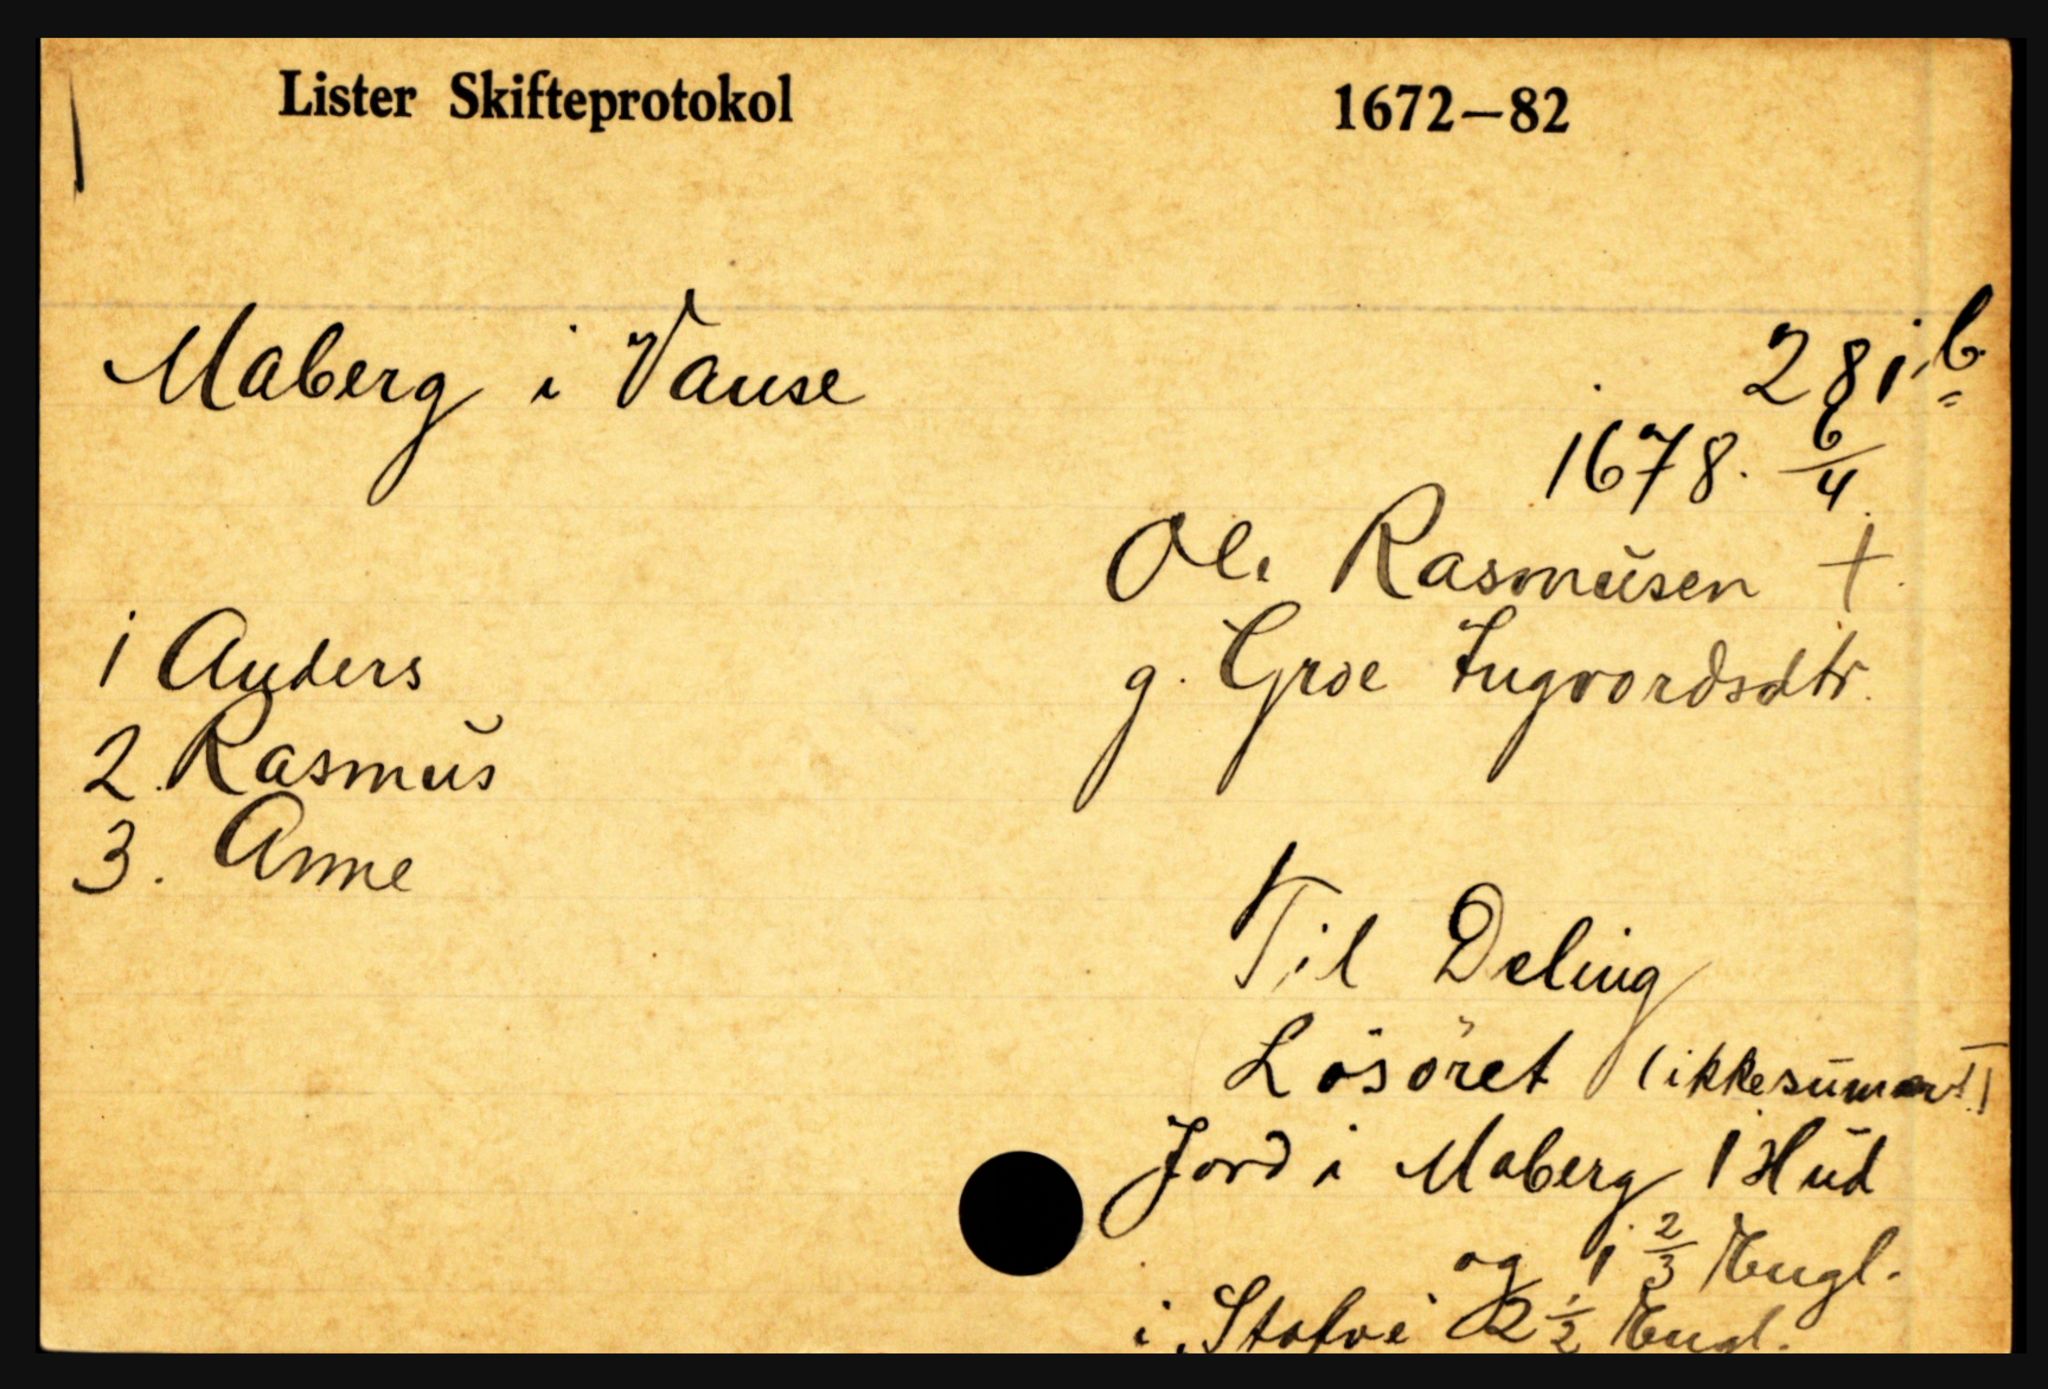 Lister Skifteprotokol 1672-82
Maberg i Vanse
281 b
1678. 6/4
Ole Rasmusen †
g. Groe Ingvordsdtr.
1 Anders
2. Rasmus
3. Anne
Til Deling
Lösöret (ikke sumert)
Jord i Maberg 1 Hud
og 1 2/3 Engl.
i Stofve 2 1/2 Engl.